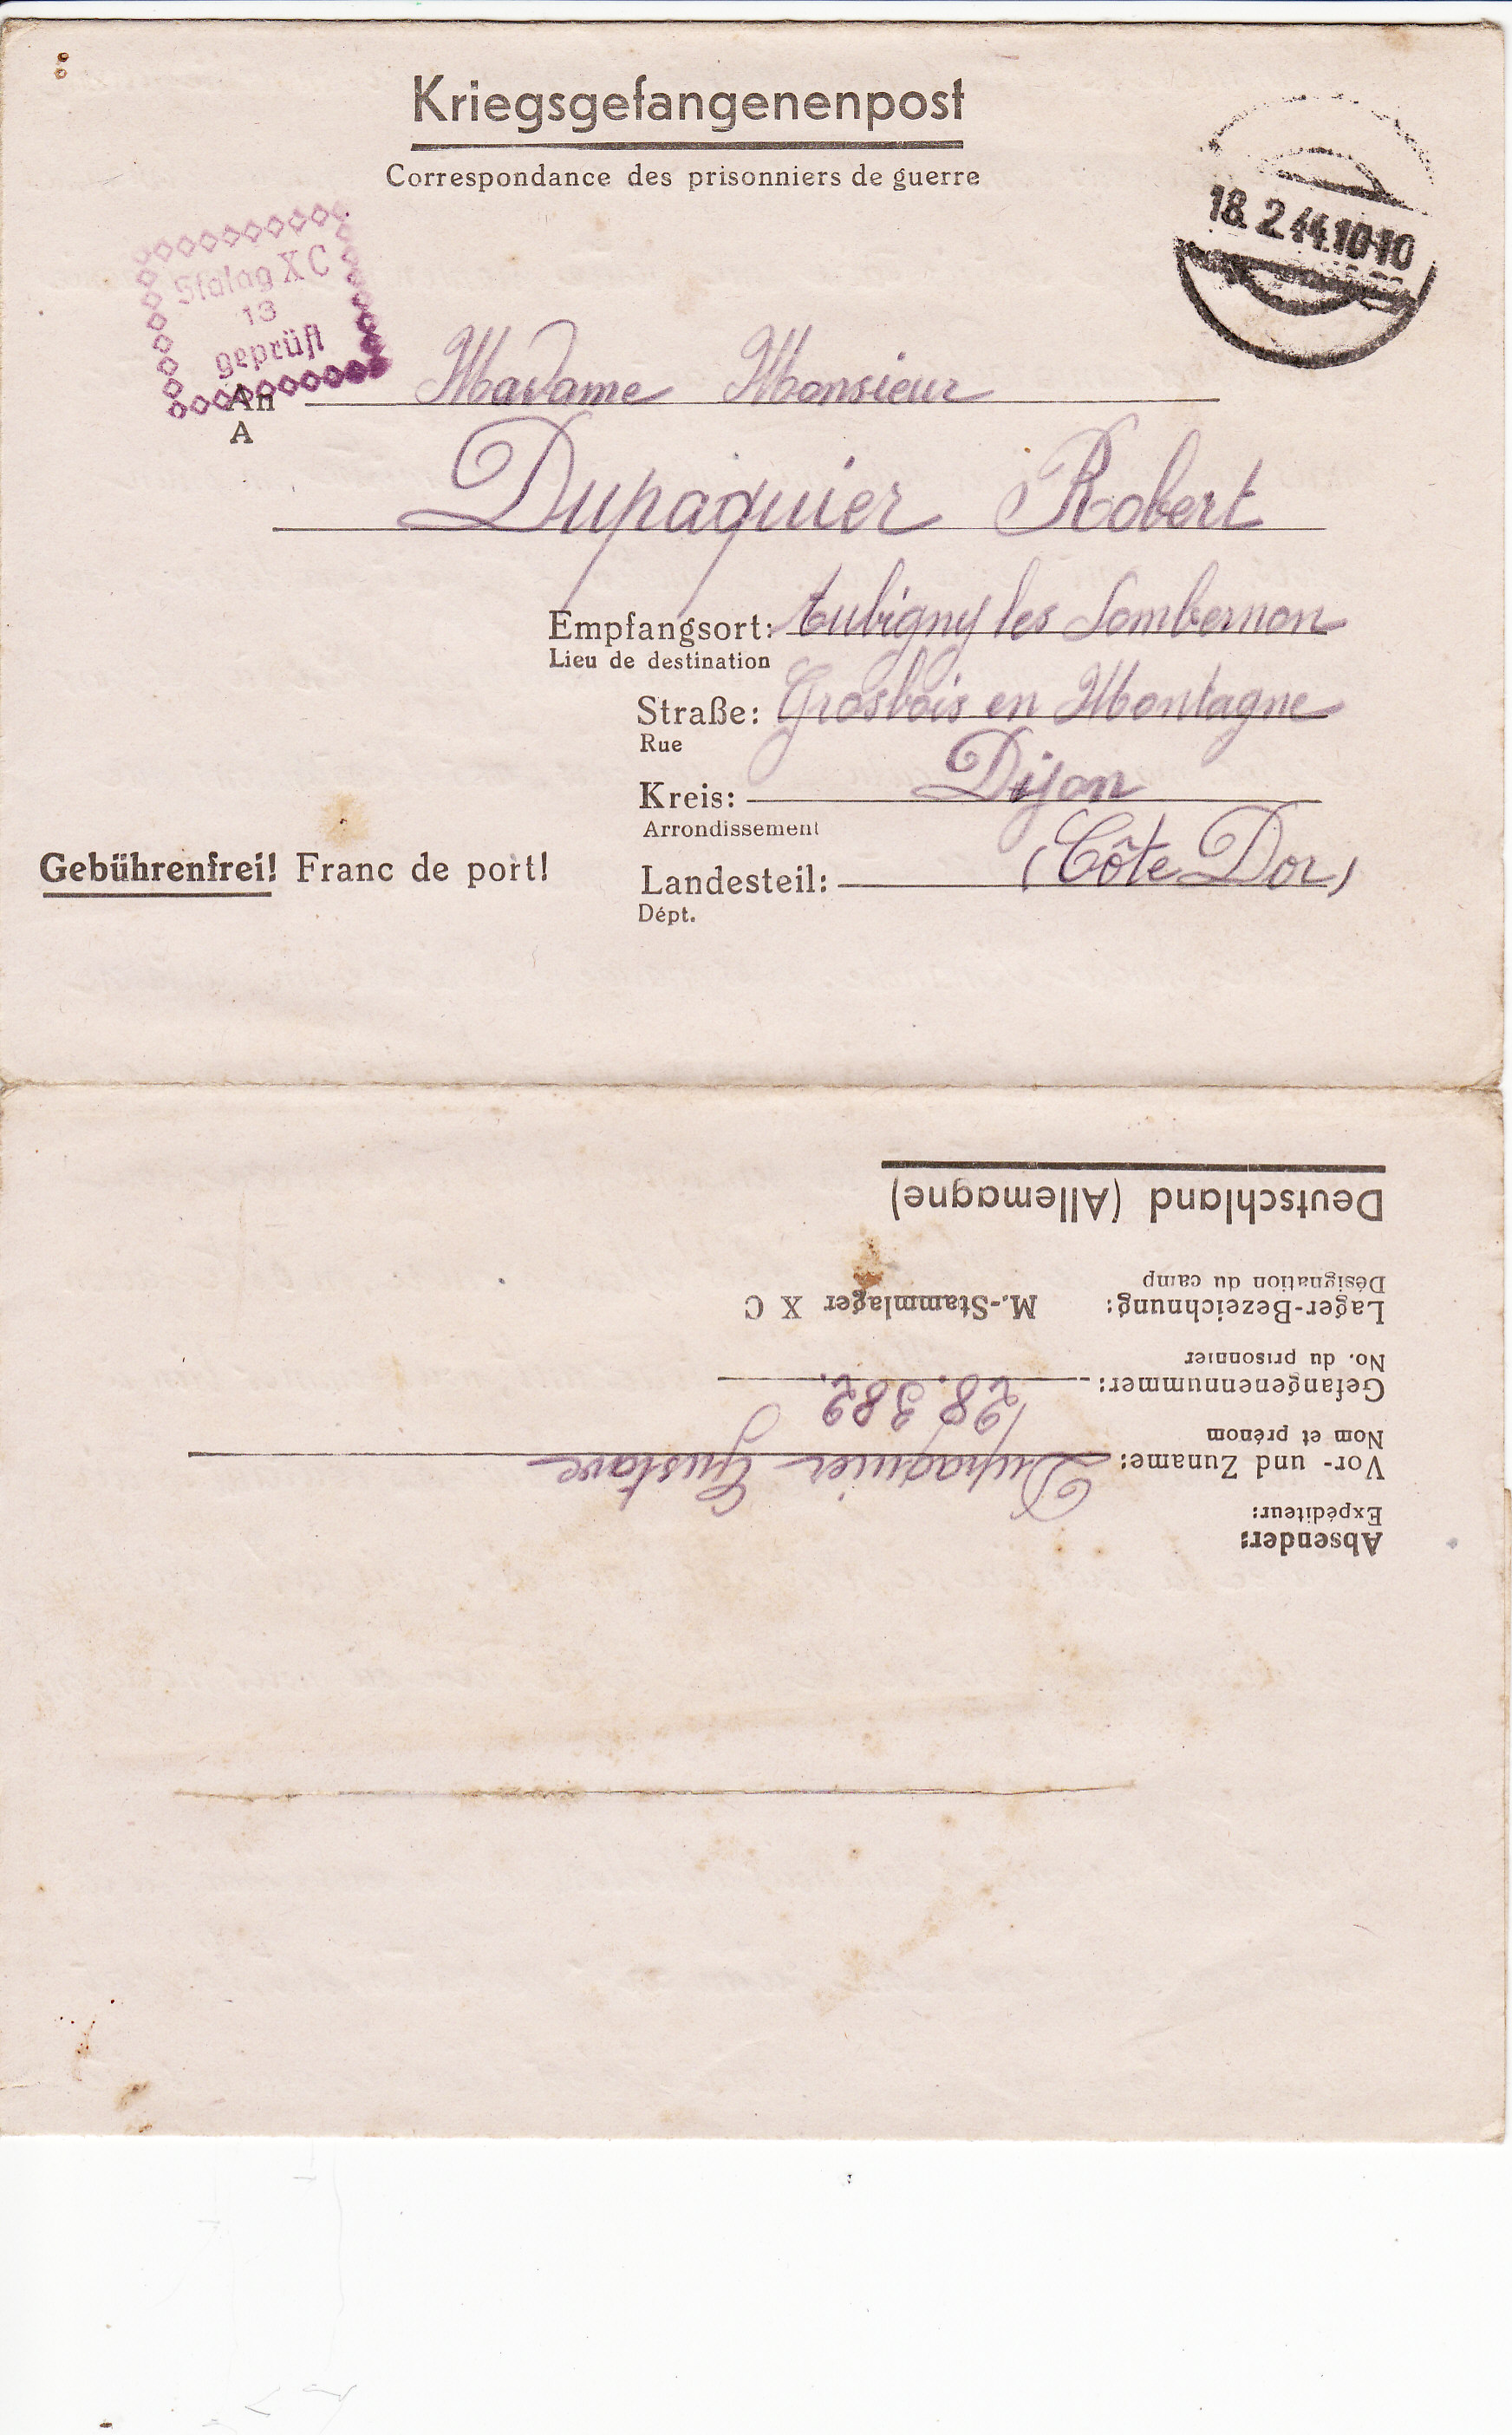 Kriegsgefangenenpost
Correspondance des prisonniers de guerre
18.2.44.10-10
Stalag X C
13
geprüft
An Madame Monsieur
A
Dupaquier Robert
Empfangsort: Aubigny les Sombernon
Lieu de destination
Straße: Grosbois en Montagne
Rue
Kreis: Dijon
Arrondissement
Gebührenfrei! Franc de port!
Landesteil: (Côte Dor)
Dépt.
Absender:
Expéditeur:
Vor- und Zuname: Dupaquier Gustave
Nom et prénom
Gefangenennummer: 28.382.
No. du prisonnier
Lager-Bezeichnung: M.-Stammlager X C
Désignation du camp
Deutschland (Allemagne)